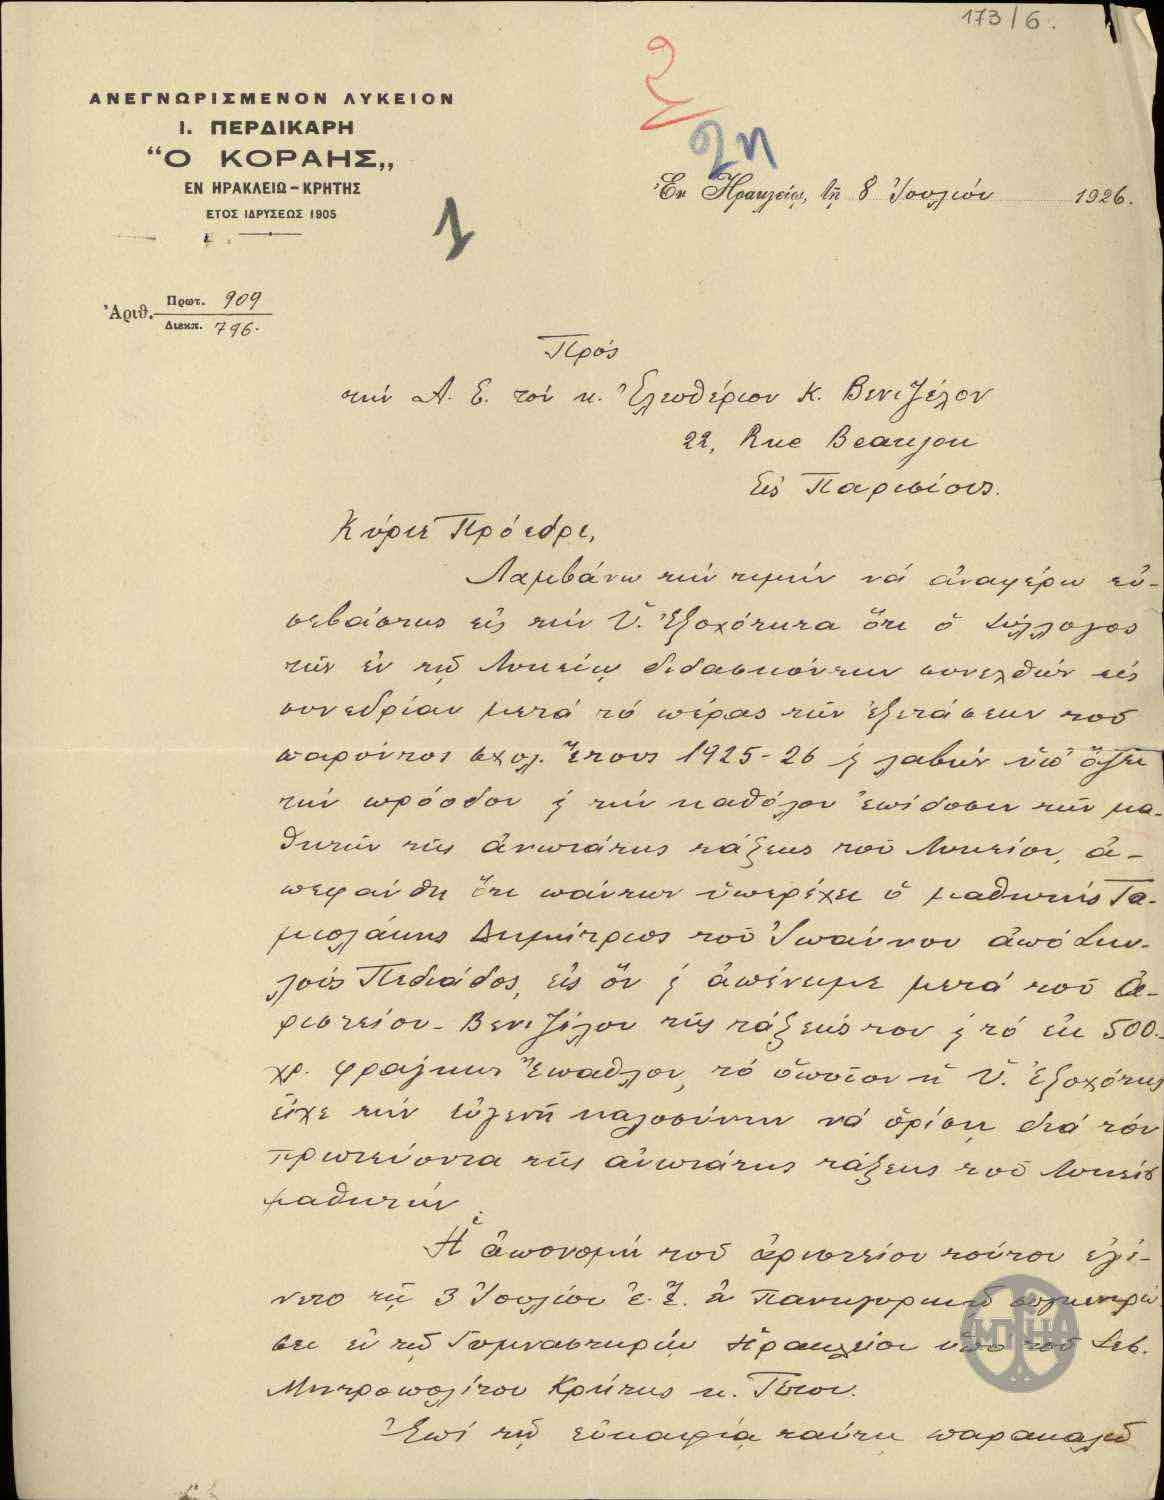 173/6.
ΑΝΕΓΝΩΡΙΣΜΕΝΟΝ ΛΥΚΕΙΟΝ
Ι. ΠΕΡΔΙΚΑΡΗ
“Ο ΚΟΡΑΗΣ„
ΕΝ ΗΡΑΚΛΕΙΩ – ΚΡΗΤΗΣ
ΕΤΟΣ ΙΔΡΥΣΕΩΣ 1905
2η
1
Ἐν Ἡρακλείῳ, τῇ 8 Ἰουλίου 1926.
Ἀριθ. Πρωτ. 909
Διεκπ. 796.
Πρός
τὴν Α. Ε. τὸν κ. Ἐλευθέριον Κ. Βενιζέλον
22, Rue Beaujon
Εἰς Παρισίους.
Κύριε Πρόεδρε,
Λαμβάνω τὴν τιμὴν νὰ ἀναφέρω εὐ-
σεβάστως εἰς τὴν Ὑ. Ἐξοχότητα ὅτι ὁ Σύλλογος
τῶν ἐν τῷ Λυκείῳ διδασκόντων συνελθὼν εἰς
συνεδρίαν μετὰ τὸ πέρας τῶν ἐξετάσεων τοῦ
παρόντος σχολ. ἔτους 1925-26 ϗ λαβὼν ὑπ' ὄψει
τὴν πρόοδον ϗ τὴν καθόλου ἐπίδοσιν τῶν μα-
θητῶν τῆς ἀνωτάτης τάξεως τοῦ Λυκείου, ἀ-
πεφάνθη ὅτι πάντων ὑπερέχει ὁ μαθητὴς Τα-
μιολάκης Δημήτριος τοῦ Ἰωάννου ἀπὸ Σκι-
λοὺς Πεδιάδος, εἰς ὃν ϗ ἀπένειμε μετὰ τοῦ ἀ-
ριστείου Βενιζέλου τῆς τάξεώς του ϗ τὸ ἐκ 500
χρ. φράγκων ἔπαθλον, τὸ ὁποῖον ἡ Ὑ. Ἐξοχότης
εἶχε τὴν εὐγενῆ καλοσύνην νὰ ὁρίσῃ διὰ τὸν
πρωτεύοντα τῆς ἀνωτάτης τάξεως τοῦ Λυκείου
μαθητήν.
Ἡ ἀπονομὴ τοῦ ἀριστείου τούτου ἐγέ-
νετο τῇ 3 Ἰουλίου ἐ. ἔ. ἐν πανηγυρικῇ συγκεντρώ
σει ἐν τῷ Γυμναστηρίῳ Ἡρακλείου ὑπὸ τοῦ Σεβ.
Μητροπολίτου Κρήτης κ. Τίτου.
Ἐπὶ τῇ εὐκαιρίᾳ ταύτῃ παρακαλῶ